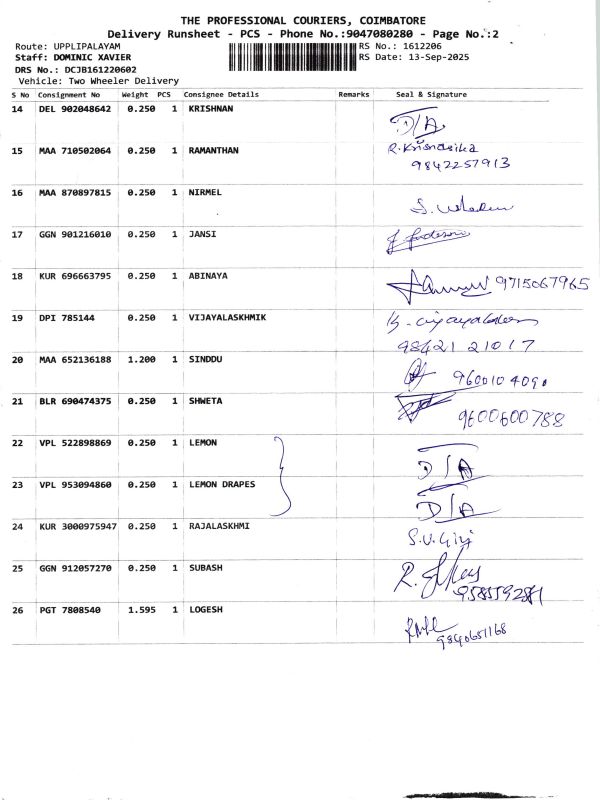 THE PROFESSIONAL COURIERS, COIMBATORE
Delivery Runsheet - PCS - Phone No.:9047080280 - Page No.:2
Route: UPPLIPALAYAM RS No.: 1612206
Staff: DOMINIC XAVIER RS Date: 13-Sep-2025
DRS No.: DCJB161220602
Vehicle: Two Wheeler Delivery
S No Consignment No Weight PCS Consignee Details Remarks Seal & Signature
14 DEL 902048642 0.250 1 KRISHNAN D/A
15 MAA 710502064 0.250 1 RAMANTHAN R.Krisnasika
9842257913
16 MAA 870897815 0.250 1 NIRMEL
17 GGN 901216010 0.250 1 JANSI
18 KUR 696663795 0.250 1 ABINAYA 9715067965
19 DPI 785144 0.250 1 VIJAYALASKHMIK
98421 21017
20 MAA 652136188 1.200 1 SINDDU 9600104090
21 BLR 690474375 0.250 1 SHWETA 9600600788
22 VPL 522898869 0.250 1 LEMON D/A
23 VPL 953094860 0.250 1 LEMON DRAPES D/A
24 KUR 3000975947 0.250 1 RAJALASKHMI S.V.Giri
25 GGN 912057270 0.250 1 SUBASH
26 PGT 7808540 1.595 1 LOGESH 9840651168